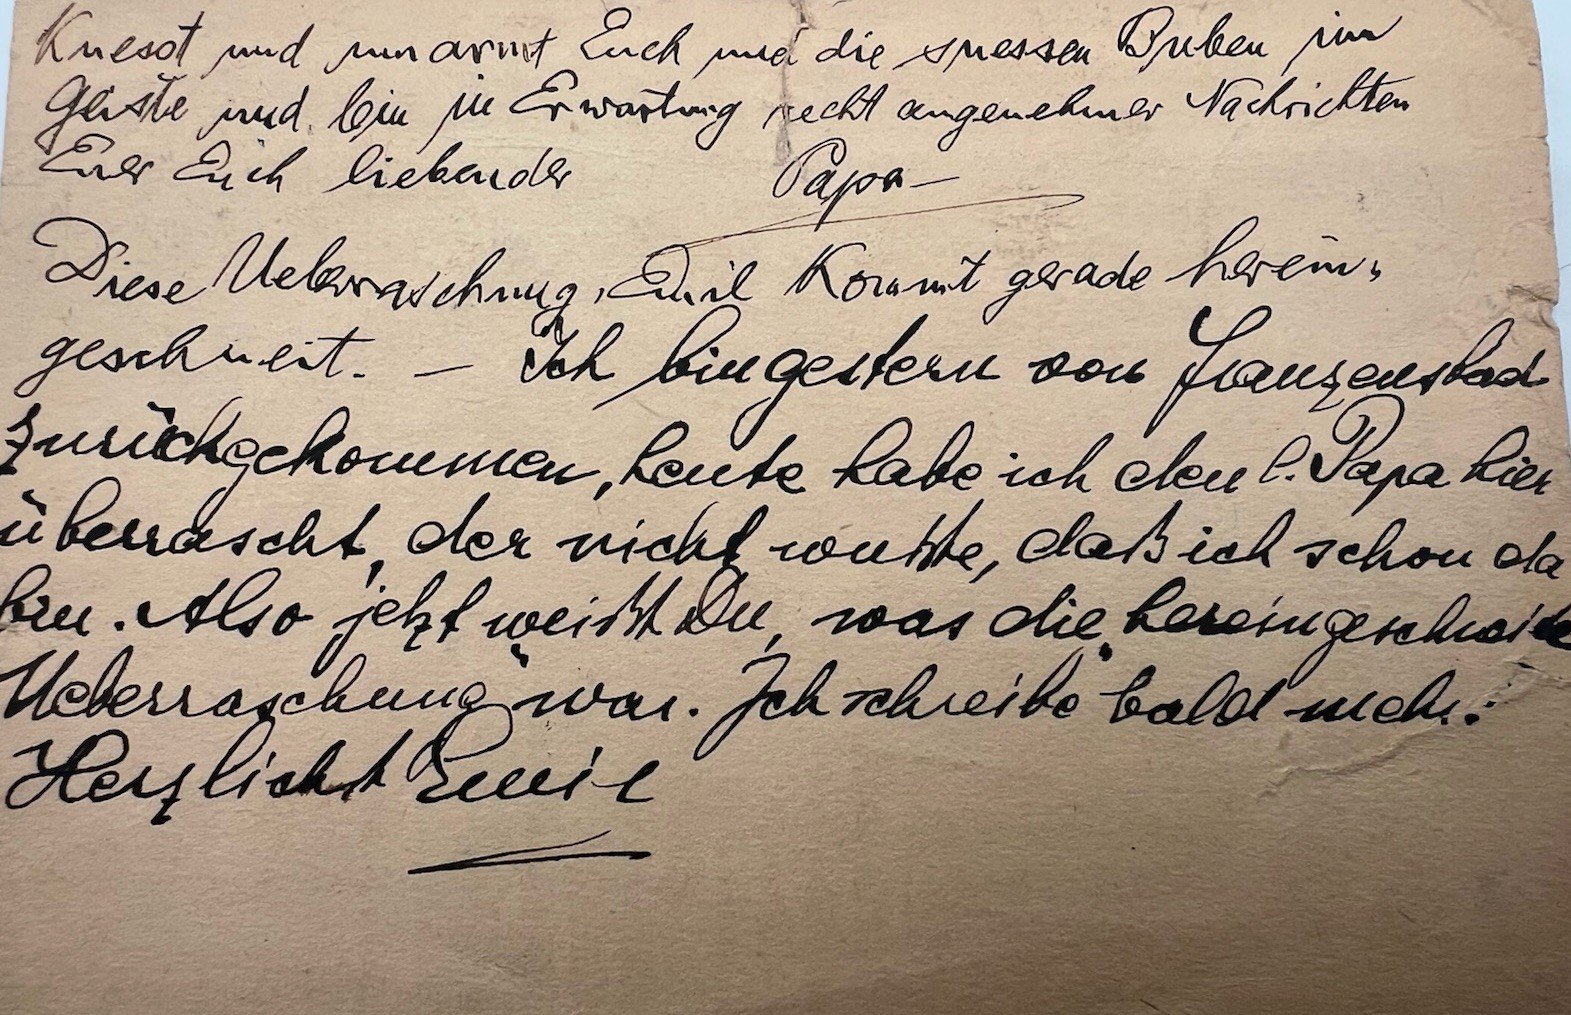 Kuesst und umarmt Euch und die suessen Buben im
Geiste und bin in Erwartung recht angenehmer Nachrichten
Euer Euch liebender Papa —
Diese Ueberraschung, Emil kommt gerade herein-
geschneit. — Ich bin gestern von Franzensbad
zurückgekommen, heute habe ich den l. Papa hier
überrascht, der nicht wußte, daß ich schon da
bin. Also jetzt weißt Du, was die „hereingeschneite
Ueberraschung“ war. Ich schreibe bald mehr.
Herzlichst Emil